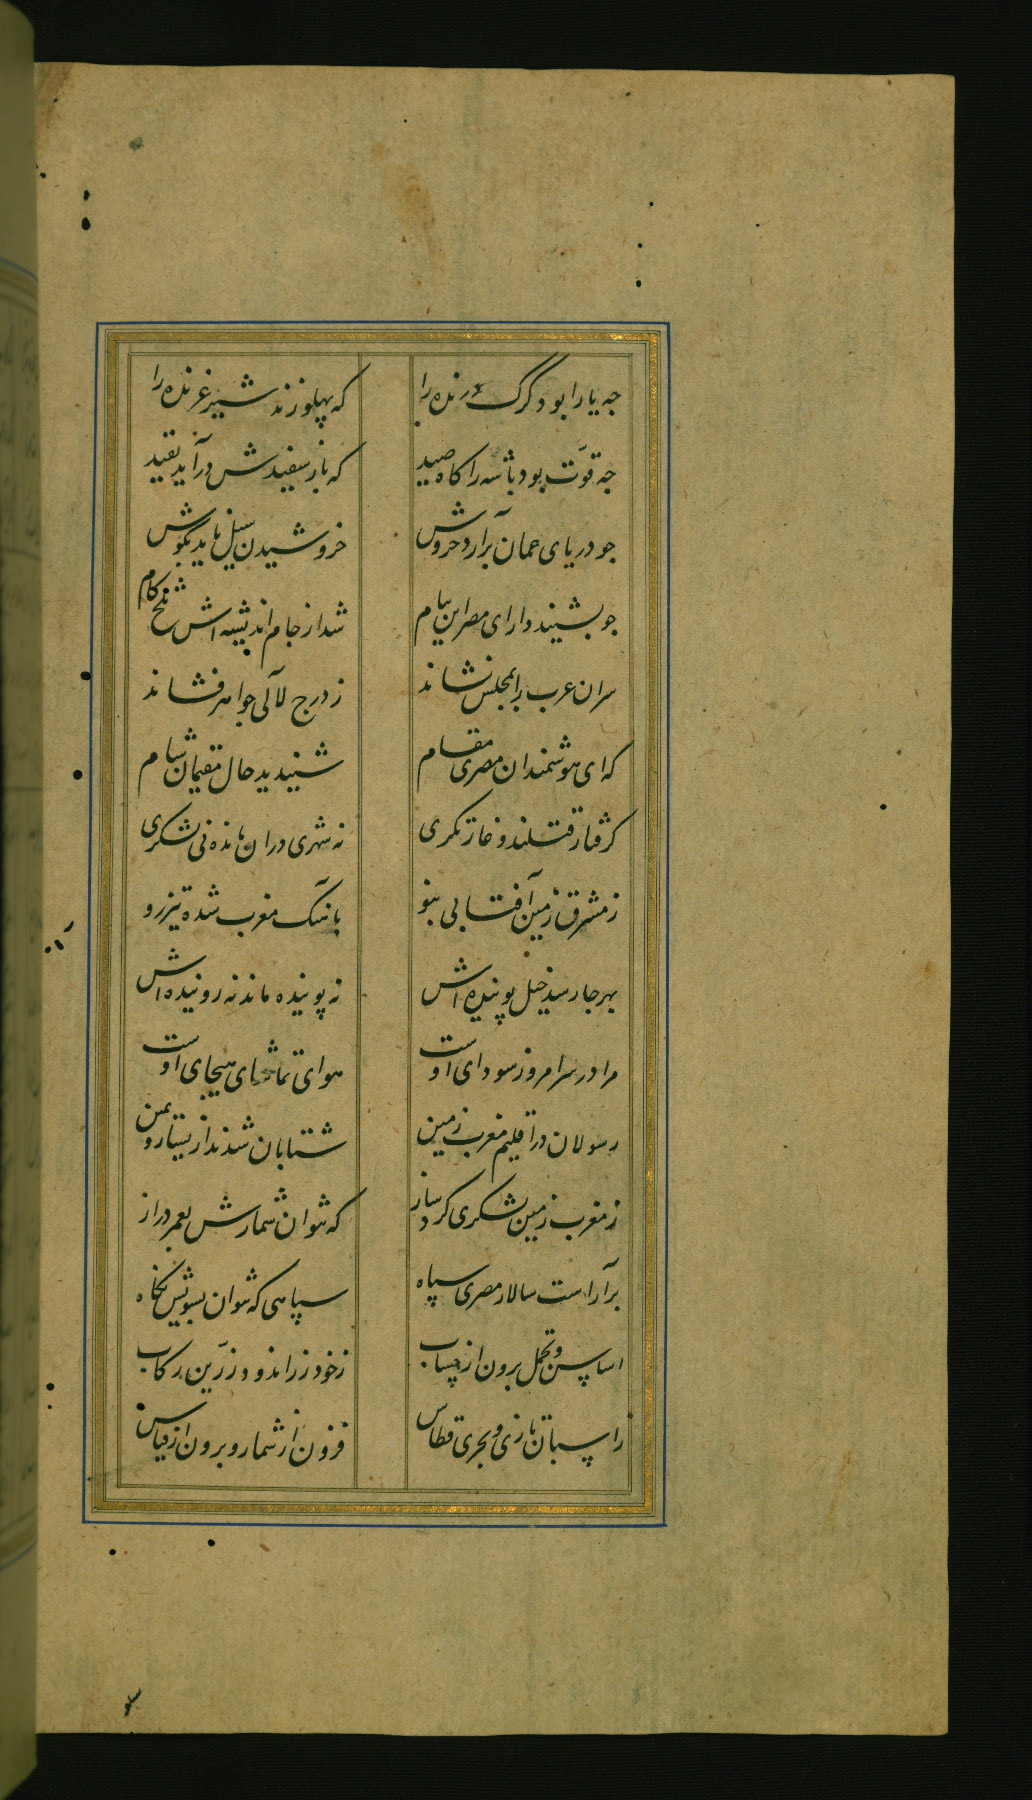 جه یارا بود گرگ درنده را که پهلو زند شیر غرنده را
جه قوّت بود باشه را کاه صید که باز سفیدش درآید بقید
جو دریای عمان برآرد خروش خروشیدن سیل ناید بکوش
جو بشنید دارای مصر این پیام شد از جام اندیشه اش تلخ کام
سران عرب را بمجلس نشاند ز درج لآلی جواهر فشاند
که ای هوشمندان مصری مقام شنیدید حال مقیمان شام
کرفتار قتلند و غارتکری نه شهری دران مانده نی لشکری
ز مشرق زمین آفتابی بنو باهنک مغرب شده تیزرو
بهر جا رسد خیل پوینده اش نه پوینده ماند نه روینده اش
مرا در سر امروز سودای اوست هوای تماشای هیجای اوست
رسولان در اقلیم مغرب زمین شتابان شدند از یسار و یمن
ز مغرب زمین لشکری کرد ساز که نتوان شمارش بعمر دراز
برآراست سالار مصری سپاه سپاهی که نتوان بسویش نکاه
اساس و تجمل برون از حساب ز خود زراندود و زرّین رکاب
ز اسبان تازی و بحری قطاس فزون از شمار و برون از قیاس